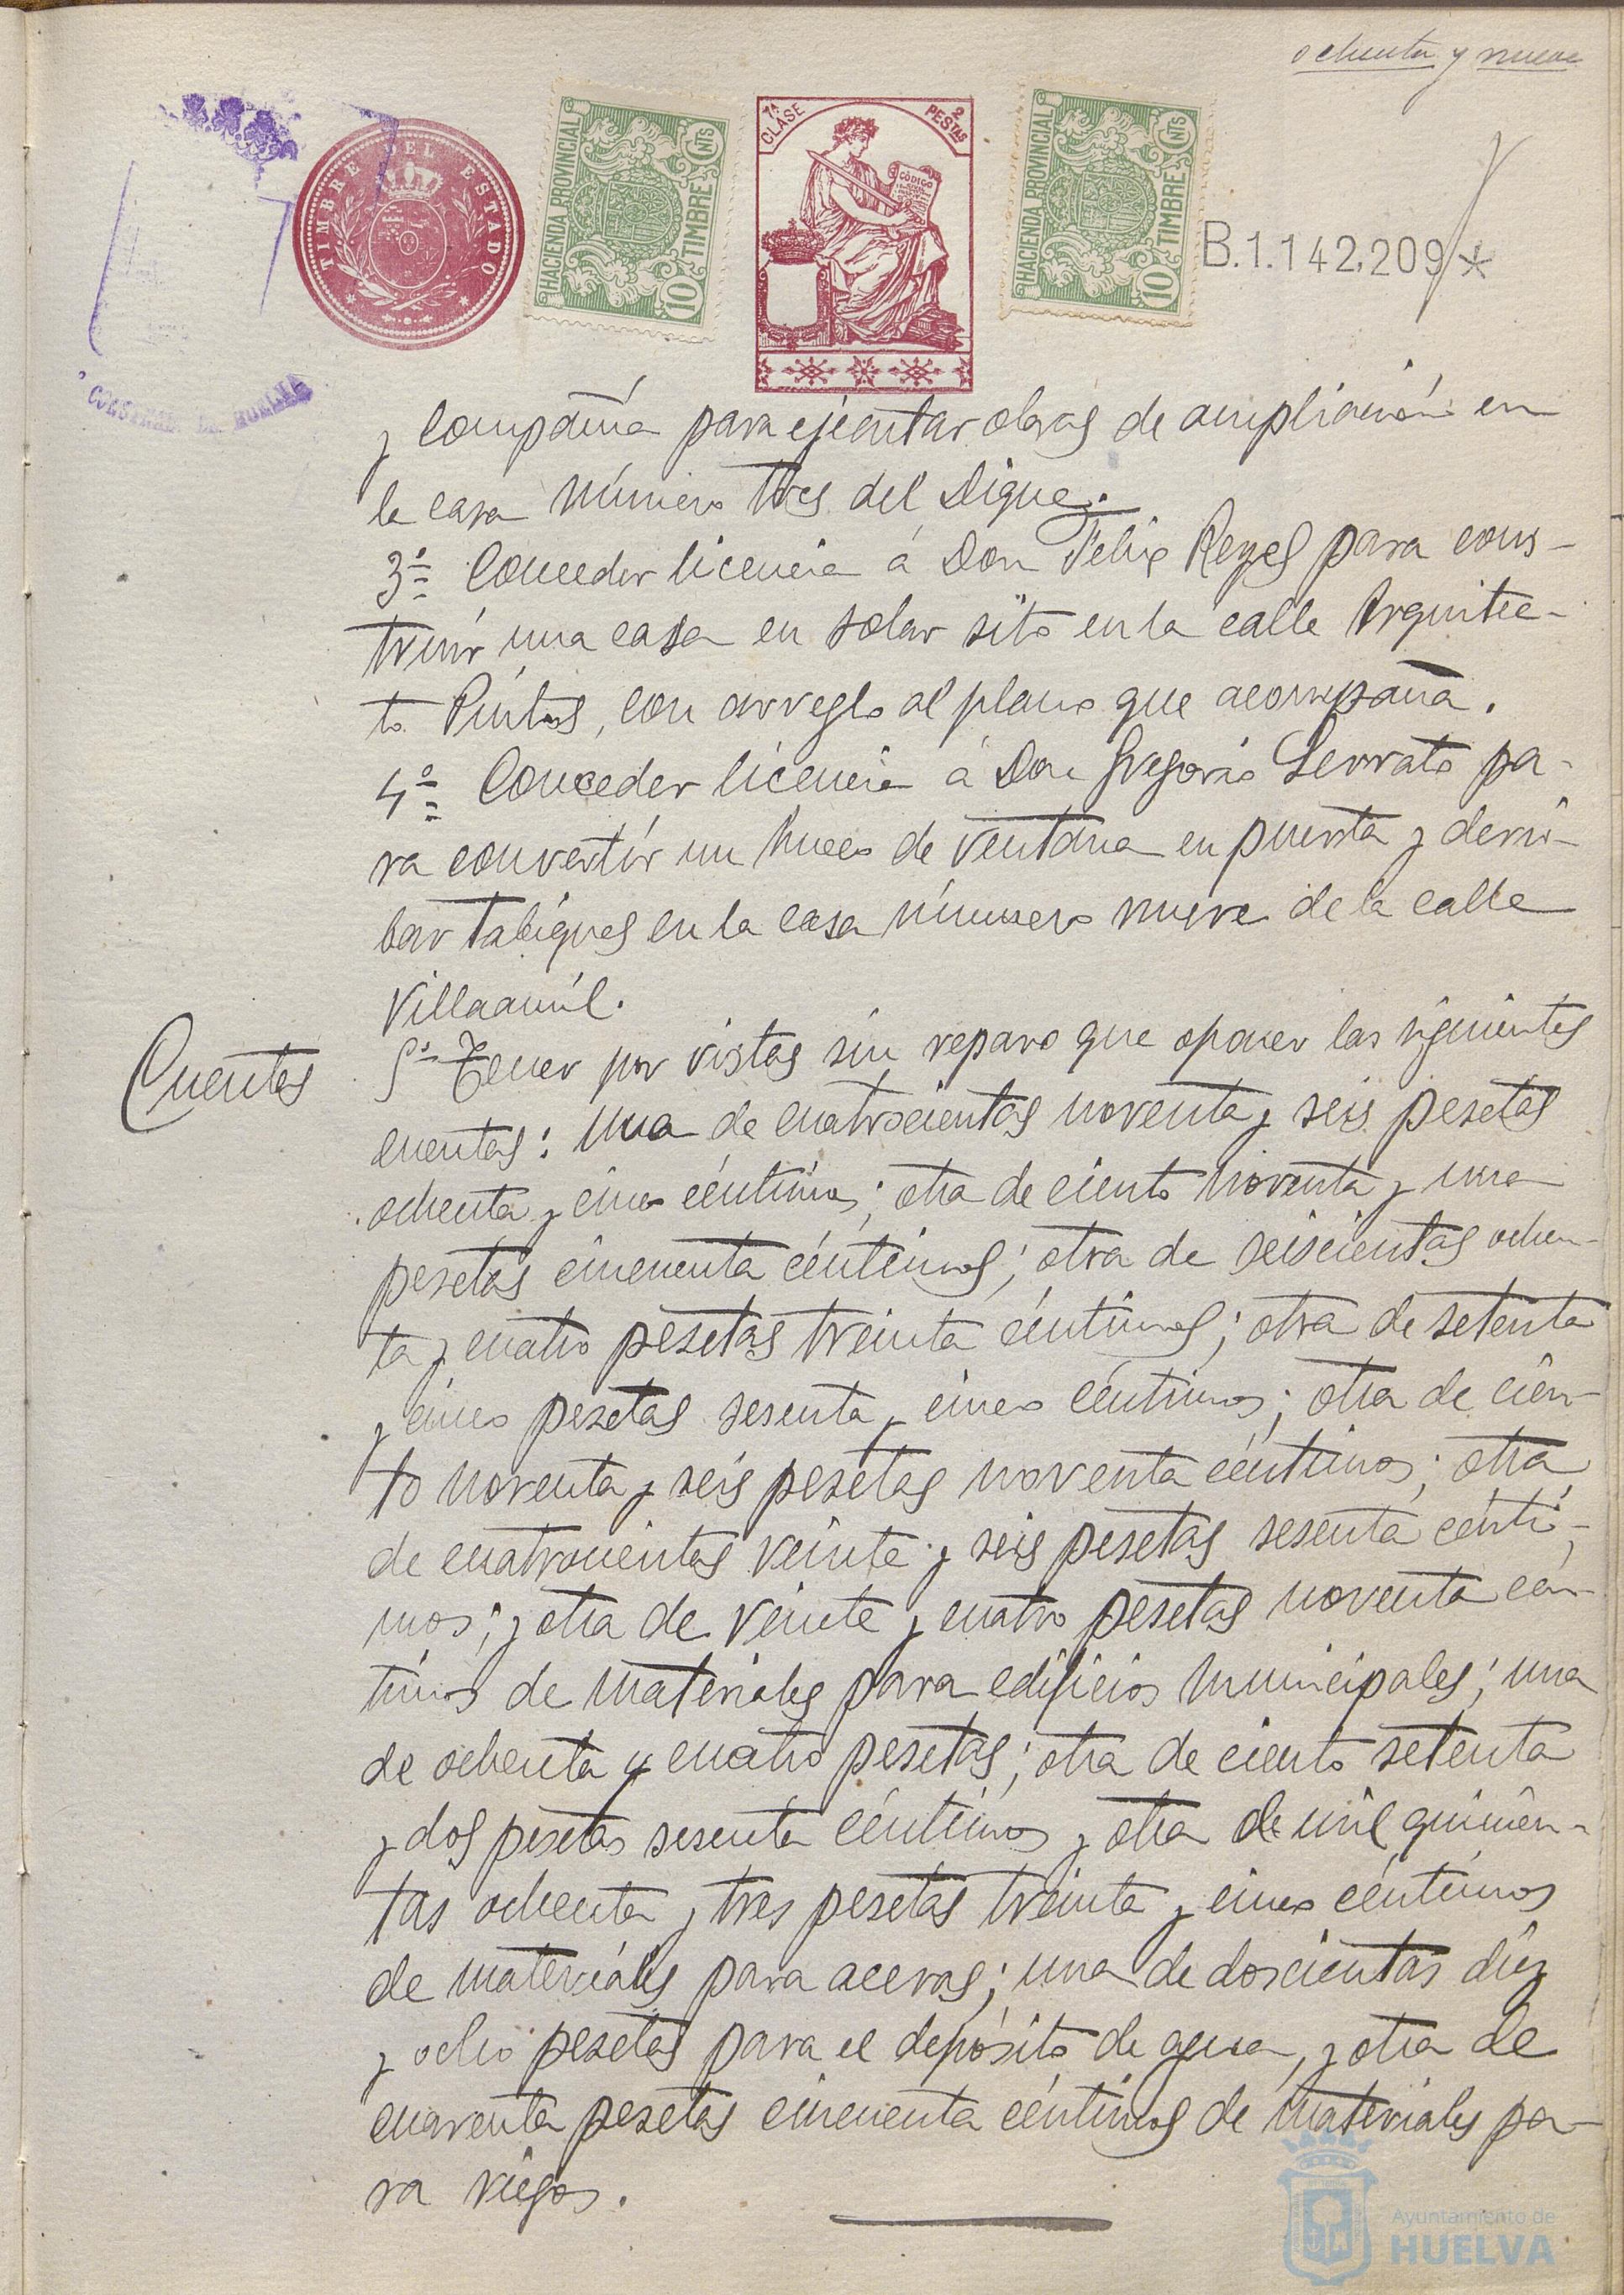 ochenta y nueve
TIMBRE DEL ESTADO
HACIENDA PROVINCIAL
TIMBRE
10 CNTS
1ª CLASE
2 PESTAS
CÓDIGO
HACIENDA PROVINCIAL
TIMBRE
10 CNTS
B.1.142,209*
y Compañía para ejecutar obras de ampliación en
la casa número tres del Dique.
3º Conceder licencia á Don Felix Reyes para cons-
truir una casa en solar sito en la calle Arquitec-
to Pintos, con arreglo al plano que acompaña.
4º Conceder licencia á Don Gregorio Serrato pa-
ra convertir un hueco de ventana en puerta y derri-
bar tabiques en la casa número nueve de la calle
Villaamil.
Cuentas
5º Tener por vistas sin reparo que oponer las siguientes
cuentas: una de cuatrocientas noventa y seis pesetas
ochenta y cinco céntimos; otra de ciento noventa y una
pesetas cincuenta céntimos; otra de seiscientas ochen-
ta y cuatro pesetas treinta céntimos; otra de setenta
y cinco pesetas sesenta y cinco céntimos; otra de cien-
to noventa y seis pesetas noventa céntimos; otra
de cuatrocientas veinte y seis pesetas sesenta cénti-
mos; y otra de veinte y cuatro pesetas noventa cén-
timos de materiales para edificios municipales; una
de ochenta y cuatro pesetas; otra de ciento setenta
y dos pesetas sesenta céntimos y otra de mil quinien-
tas ochenta y tres pesetas treinta y cinco céntimos
de materiales para aceras; una de doscientas diez
y ocho pesetas para el depósito de agua, y otra de
cuarenta pesetas cincuenta céntimos de materiales pa-
ra riegos.
Ayuntamiento de
HUELVA